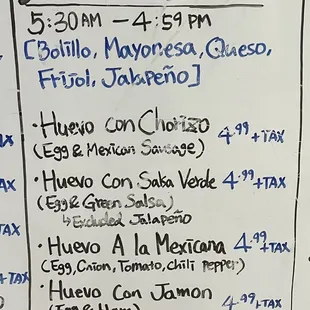 5:30AM - 4:59 PM
[Bolillo, Mayonesa, Queso,
Frijol, Jalapeño]
• Huevo con Chorizo 4.99 + TAX
(Egg & Mexican Sausage)
• Huevo Con Salsa Verde 4.99 +TAX
(Egg & Green Salsa)
↳ Excluded Jalapeño
• Huevo A la Mexicana 4.99 +TAX
(Egg, Onion, Tomato, chili pepper)
• Huevo Con Jamon 4.99 +TAX
(Egg & Ham)